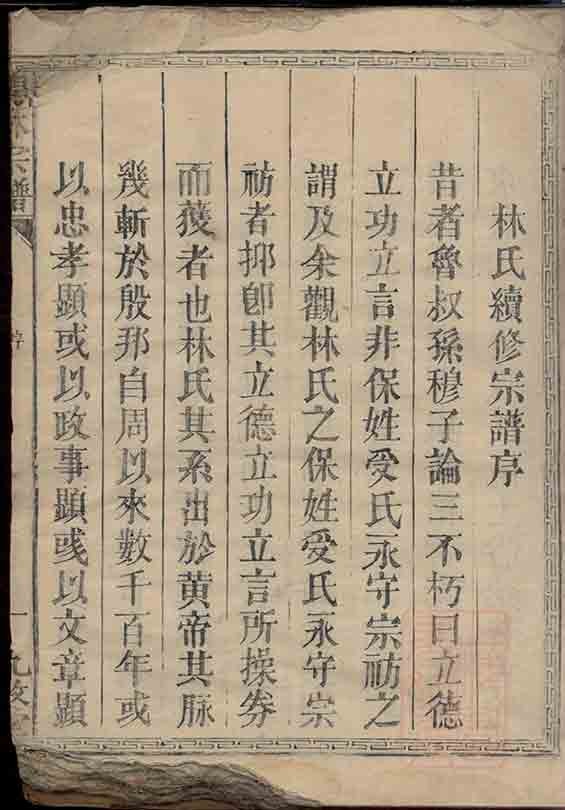 林氏續修宗譜序
昔者魯叔孫穆子論三不朽曰立德
立功立言非保姓受氏永守宗祊之
謂及余觀林氏之保姓受氏永守宗
祊者抑卽其立德立功立言所操券
而獲者也林氏其系出於黃帝其脉
幾斬於殷邦自周以來數千百年或
以忠孝顯或以政事顯或以文章顯
林宗譜
序
一
九牧